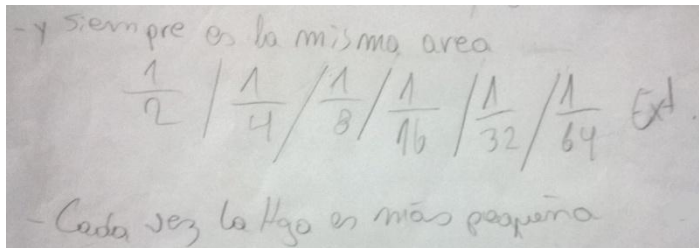 -y siempre es la misma area
1/2 / 1/4 / 1/8 / 1/16 / 1/32 / 1/64 Ext.
- Cada vez la Hga es más pequeña